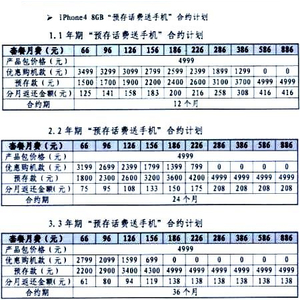 ➢ iPhone4 8GB“预存话费送手机”合约计划
1.1年期“预存话费送手机”合约计划
套餐月费（元） 66 96 126 156 186 226 286 386 586 886
产品包价格（元） 4999
优惠购机款（元） 3499 3299 3099 2799 2599 2399 1899 1299 0 0
预存款（元） 1500 1700 1900 2200 2400 2600 3100 3700 4999 4999
分月返还金额（元） 125 141 158 183 200 216 258 308 416 416
合约期 12个月
2.2年期“预存话费送手机”合约计划
套餐月费（元） 66 96 126 156 186 226 286 386 586 886
产品包价格（元） 4999
优惠购机款（元） 3199 2699 2399 1799 1399 799 0 0 0 0
预存款（元） 1800 2300 2600 3200 3600 4200 4999 4999 4999 4999
分月返还金额（元） 75 95 108 133 150 175 208 208 208 208
合约期 24个月
3.3年期“预存话费送手机”合约计划
套餐月费（元） 66 96 126 156 186 226 286 386 586 886
产品包价格（元） 4999
优惠购机款（元） 2799 2099 1599 699 0 0 0 0 0 0
预存款（元） 2200 2900 3400 4300 4999 4999 4999 4999 4999 4999
分月返还金额（元） 61 80 94 119 138 138 138 138 138 138
合约期 36个月